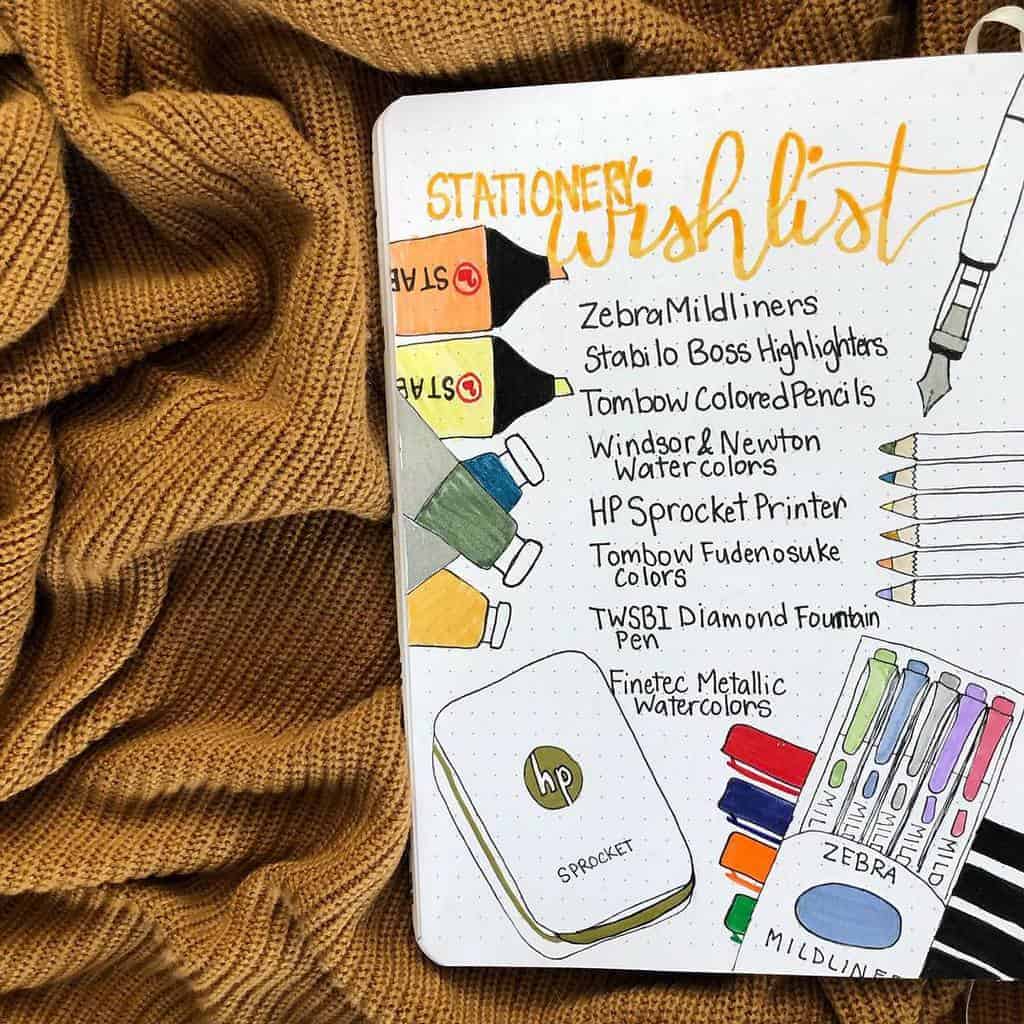 STATIONERY
wishlist
STAB
STAB
Zebra Mildliners
Stabilo Boss Highlighters
Tombow Colored Pencils
Windsor & Newton
Watercolors
HP Sprocket Printer
Tombow Fudenosuke
Colors
TWSBI Diamond Fountain
Pen
Finetec Metallic
Watercolors
hp
SPROCKET
MILD
MILD
MILD
MILD
MILD
ZEBRA
MILDLINE